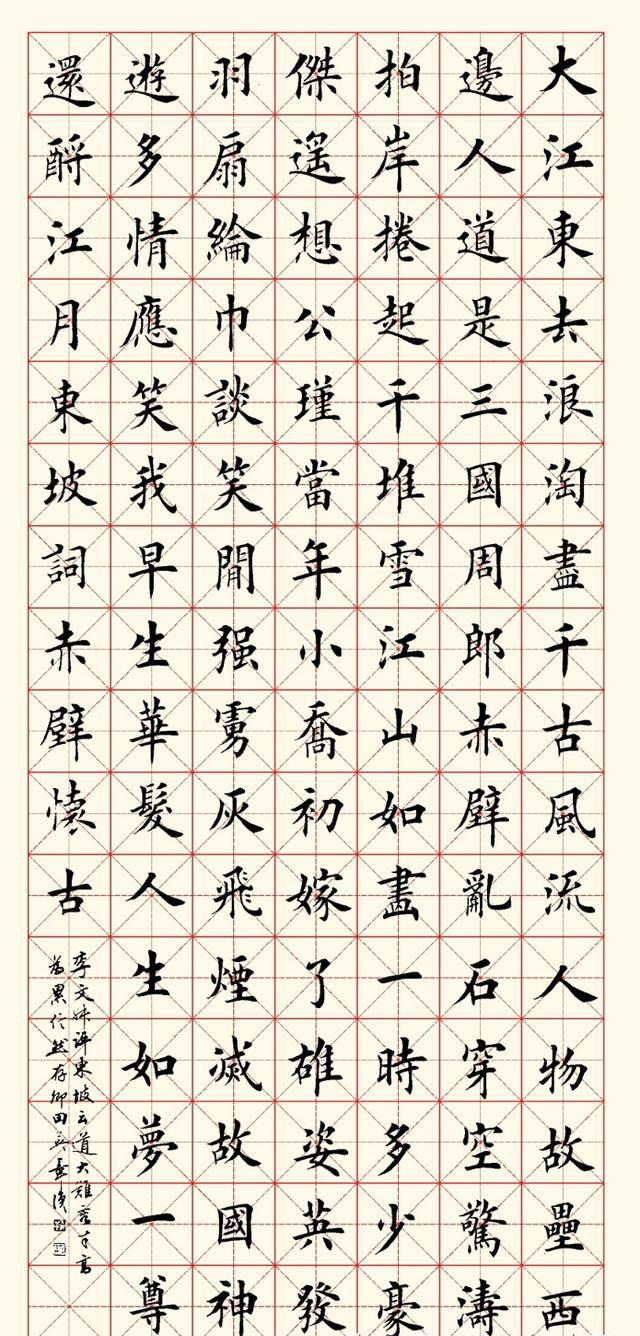 大江東去浪淘盡千古風流人物故壘西
邊人道是三國周郎赤壁亂石穿空驚濤
拍岸捲起千堆雪江山如畫一時多少豪
傑遥想公瑾當年小喬初嫁了雄姿英發
羽扇綸巾談笑閒强虜灰飛煙滅故國神
遊多情應笑我早生華髮人生如夢一尊
還酹江月東坡詞赤壁懷古
評東坡云道大難容才高
為累信然存卿田英章